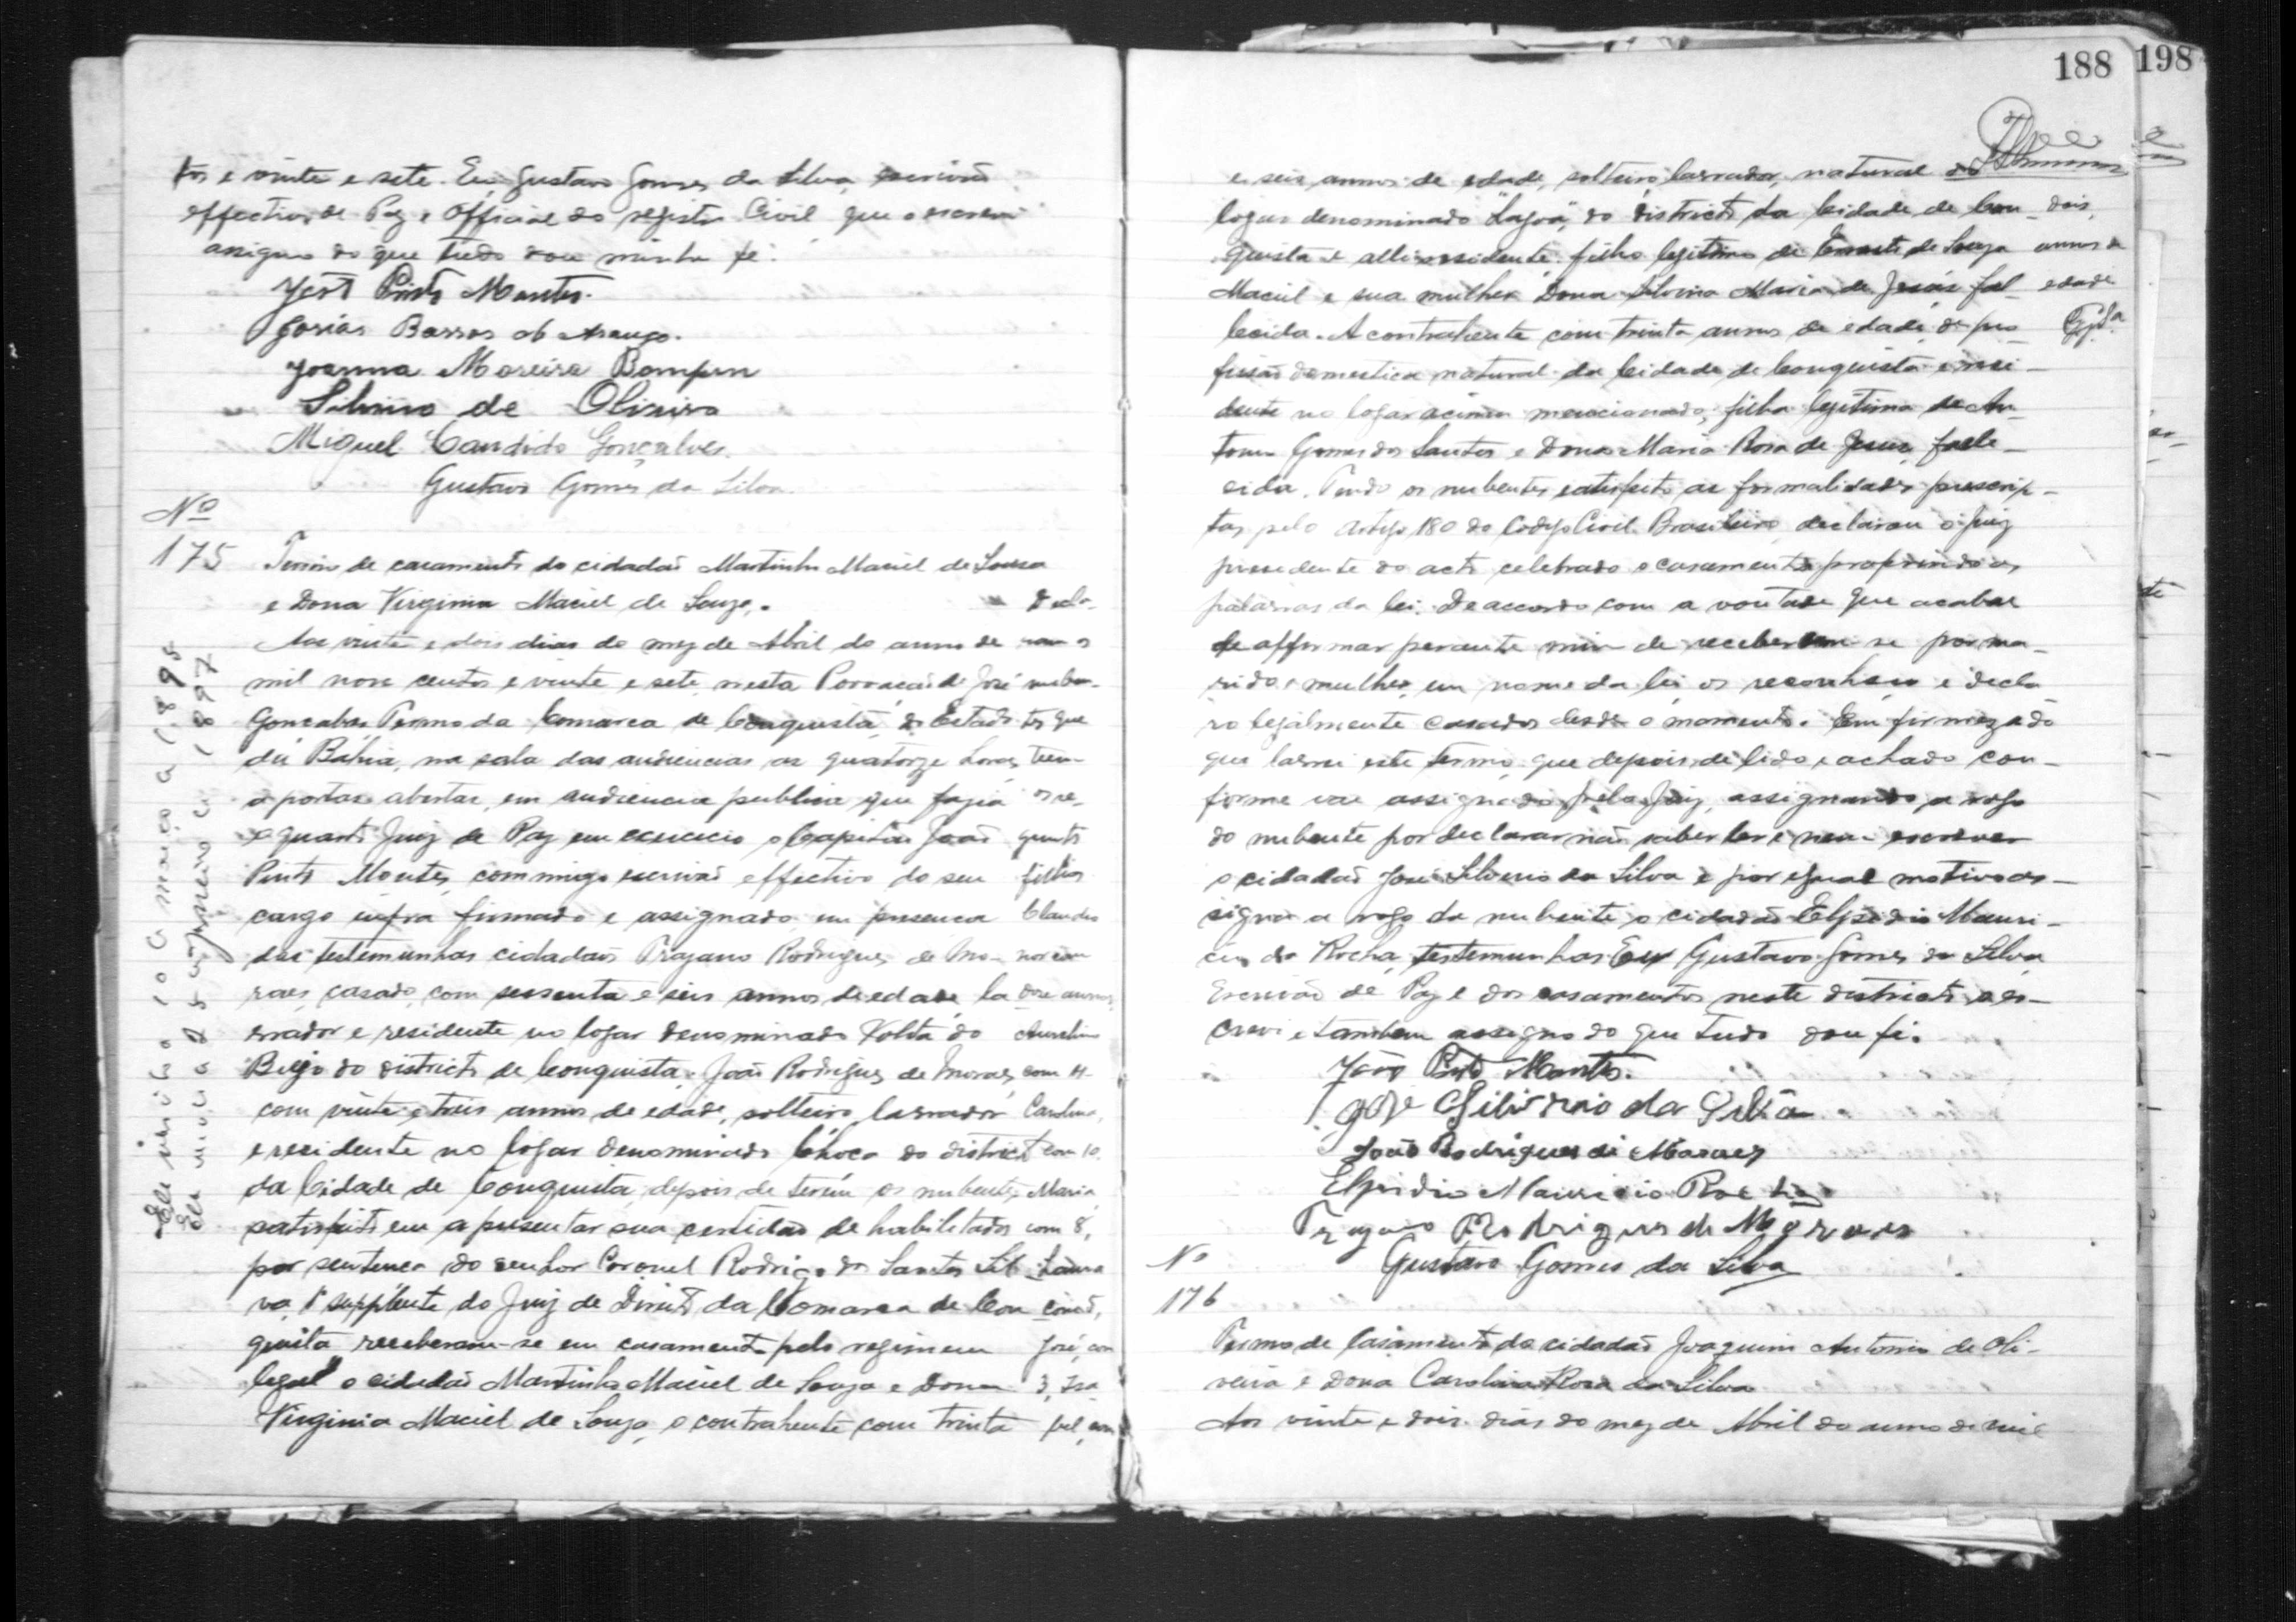 tos e vinte e sete. Eu, Gustavo Gomes da Silva, escrivão
effectivo de Paz e Official do registro Civil que o escrevi
assigno do que tudo dou minha fé.
João Pinto Montes.
Josias Barros de Araujo.
Joanna Moreira Bomfim
Silvino de Oliveira
Miguel Candido Gonçalves.
Gustavo Gomes da Silva.
Nº
175
Termo de casamento do cidadão Martinho Maciel de Souza
e Dona Virginia Maciel de Souza.
Aos vinte e dois dias do mez de Abril do anno de
mil nove centos e vinte e sete, nesta Povoação de José
Gonçalves, Termo da Comarca de Conquista, do Estado
da Bahia, na sala das audiencias as quatorze horas
a portas abertas, em audiencia publica que fazia
o quarto Juiz de Paz em exercicio o Capitão João
Pinto Montes, commigo escrivão effectivo do seu
cargo infra firmado e assignado em presença
das testemunhas cidadãos Trajano Rodrigues de Mo-
raes, casado, com sessenta e seis annos de edade, la
vrador e residente no logar denominado Volta do
Beijo do districto de Conquista, João Rodrigues de Moraes,
com vinte e tres annos de edade, solteiro, lavrador
e residente no logar denominado Choça do districto
da Cidade de Conquista, depois de terem os nubentes
satisfeito em apresentar sua certidão de habilitados
por sentença do senhor Coronel Rodrigo dos Santos Sil
va, 1º supplente do Juiz de Direito da Comarca de Con
quista receberam-se em casamento pelo regimem
legal o cidadão Martinho Maciel de Souza e Dona
Virginia Maciel de Souza, o contrahente com trinta
Decla-
ram os
nuben-
tes que
teem
os se-
guints
filhos
Claudio
nor com
doze annos,
Aurelino
com 11
Carolina,
com 10.
Maria,
com 8,
Laura
com 5,
José, com
3, Isa
bel, com
Elle nasceu a 10 de março de 1895
Ella nasceu a 25 de 1897
188
198
e seis annos de edade, solteiro, lavrador, natural do
logar denominado "Lagoa", do districto da Cidade de Con-
quista e alli residente, filho legitimo de Ernesto de Souza
Maciel e sua mulher Dona Silvina Maria de Jesus fal-
lecida. A contrahente com trinta annos de edade, de pro-
fissão domestica natural da Cidade de Conquista e resi-
dente no logar acima mencionado, filha legitima de An-
tonio Gomes dos Santos e Dona Maria Rosa de Jesus, falle-
cida. Tendo os nubentes satisfeito as formalidades prescrip-
tas pelo artigo 180 do Codigo Civil Brasileiro, declarou o Juiz
presidente do acto celebrado o casamento proferindo as
palavras da lei. De accordo com a vontade que acabae
de affirmar perante mim de receberem-se por ma-
rido e mulher, em nome da lei os reconheço e decla
ro legalmente casados desde o momento. Em firmeza do
que lavrei este termo que depois de lido e achado con-
forme vae assignado pelo Juiz, assignando a rogo
do nubente por declarar não saber ler e nem escrever
o cidadão José Silverio da Silva e por igual motivo as-
signa a rogo da nubente o cidadão Elpidio Mauri-
cio da Rocha, testemunhas Eu Gustavo Gomes da Silva
Escrivão de Paz e dos casamentos neste districto o es-
crevi e tambem assigno do que tudo dou fé.
dois,
annos de
edade
João Pinto Montes.
José Silverio da Silva
João Rodrigues de Moraes
Elpidio Mauricio Rocha
Trajano Rodrigues de Moraes
Gustavo Gomes da Silva
Nº
176
Termo de Casamento do cidadão Joaquim Antonio de Oli-
veira e Dona Carolina Rosa da Silva
Aos vinte e dois dias do mez de Abril do anno de mil